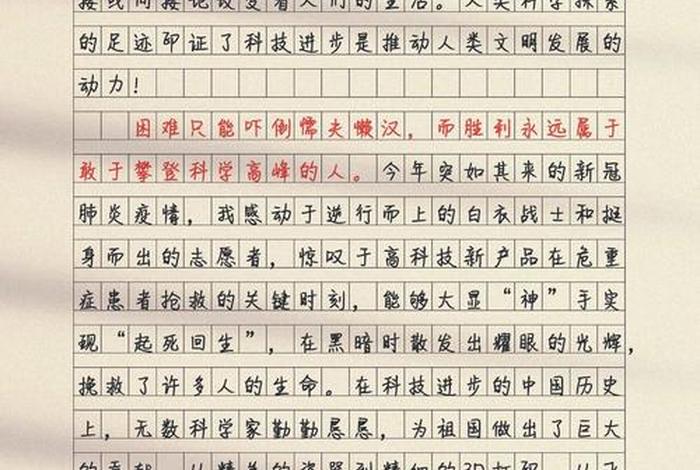 接或间接地改变着人们的生活。人类科学探索
的足迹印证了科技进步是推动人类文明发展的
动力！
困难只能吓倒懦夫懒汉，而胜利永远属于
敢于攀登科学高峰的人。今年突如其来的新冠
肺炎疫情，我感动于逆行而上的白衣战士和挺
身而出的志愿者，惊叹于高科技新产品在危重
症患者抢救的关键时刻，能够大显“神”手实
现“起死回生”，在黑暗时散发出耀眼的光辉，
挽救了许多人的生命。在科技进步的中国历史
上，无数科学家勤勤恳恳，为祖国做出了巨大
的贡献。从精美的瓷器到精细的3D打印，从飞